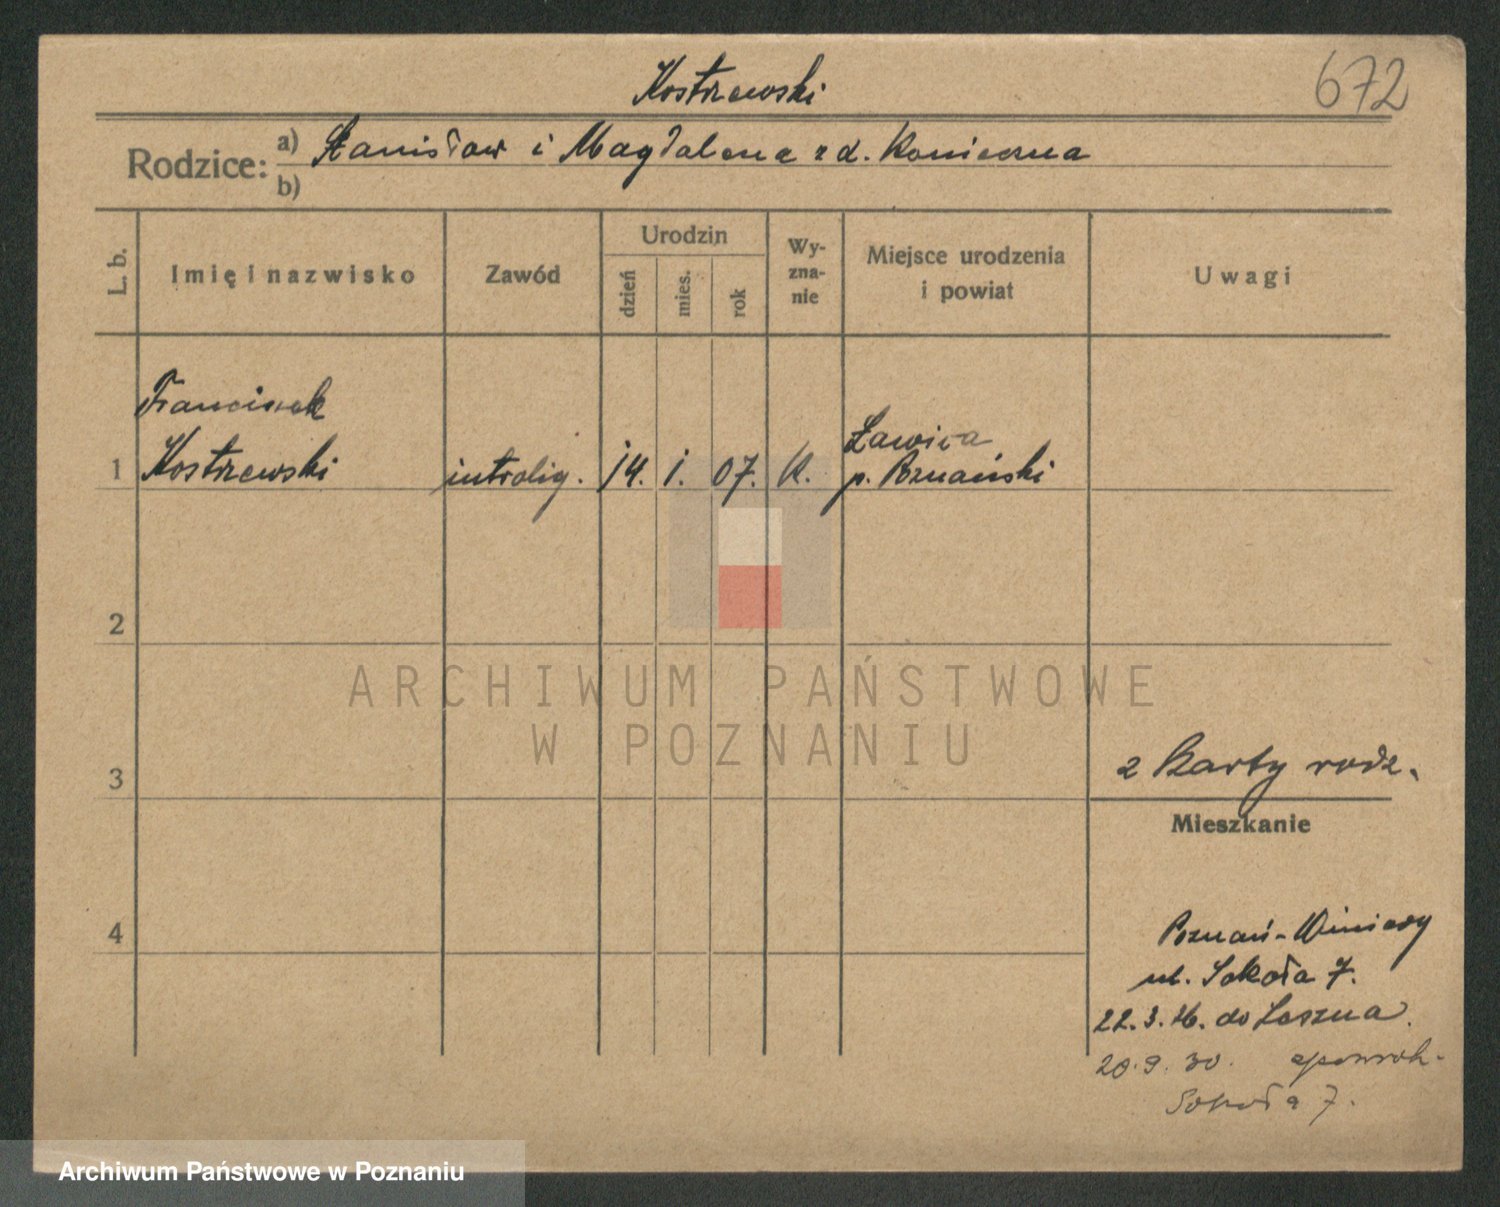 Kostrzewski
672
Rodzice: a) Stanisław i Magdalena z d. Konieczna
b)
L. b.
Imię i nazwisko
Zawód
Urodzin
dzień
mies.
rok
Wy-
zna-
nie
Miejsce urodzenia
i powiat
Uwagi
Franciszek
1 Kostrzewski introlig. 14. 1. 07. K. Ławica
p. Pznański
2
ARCHIWUM PAŃSTWOWE
W POZNANIU
3
z karty rodz.
Mieszkanie
4
Poznań-Winiary
ul. Sokoła 7.
22.3.26. do Leszna.
20.9.30.
Sokoła 7.
Archiwum Państwowe w Poznaniu